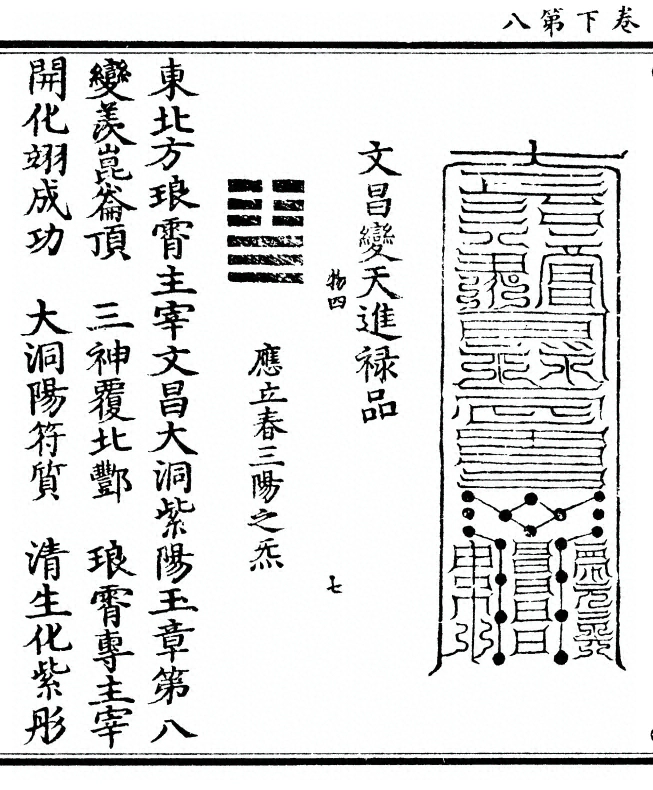 卷下第八
文昌變天進祿品
物四
七
應立春三陽之炁
東北方琅霄主宰文昌大洞紫陽玉章第八
變羨崑崙頂 三神覆北酆 琅霄專主宰
開化翊成功 大洞陽符質 清生化紫彤